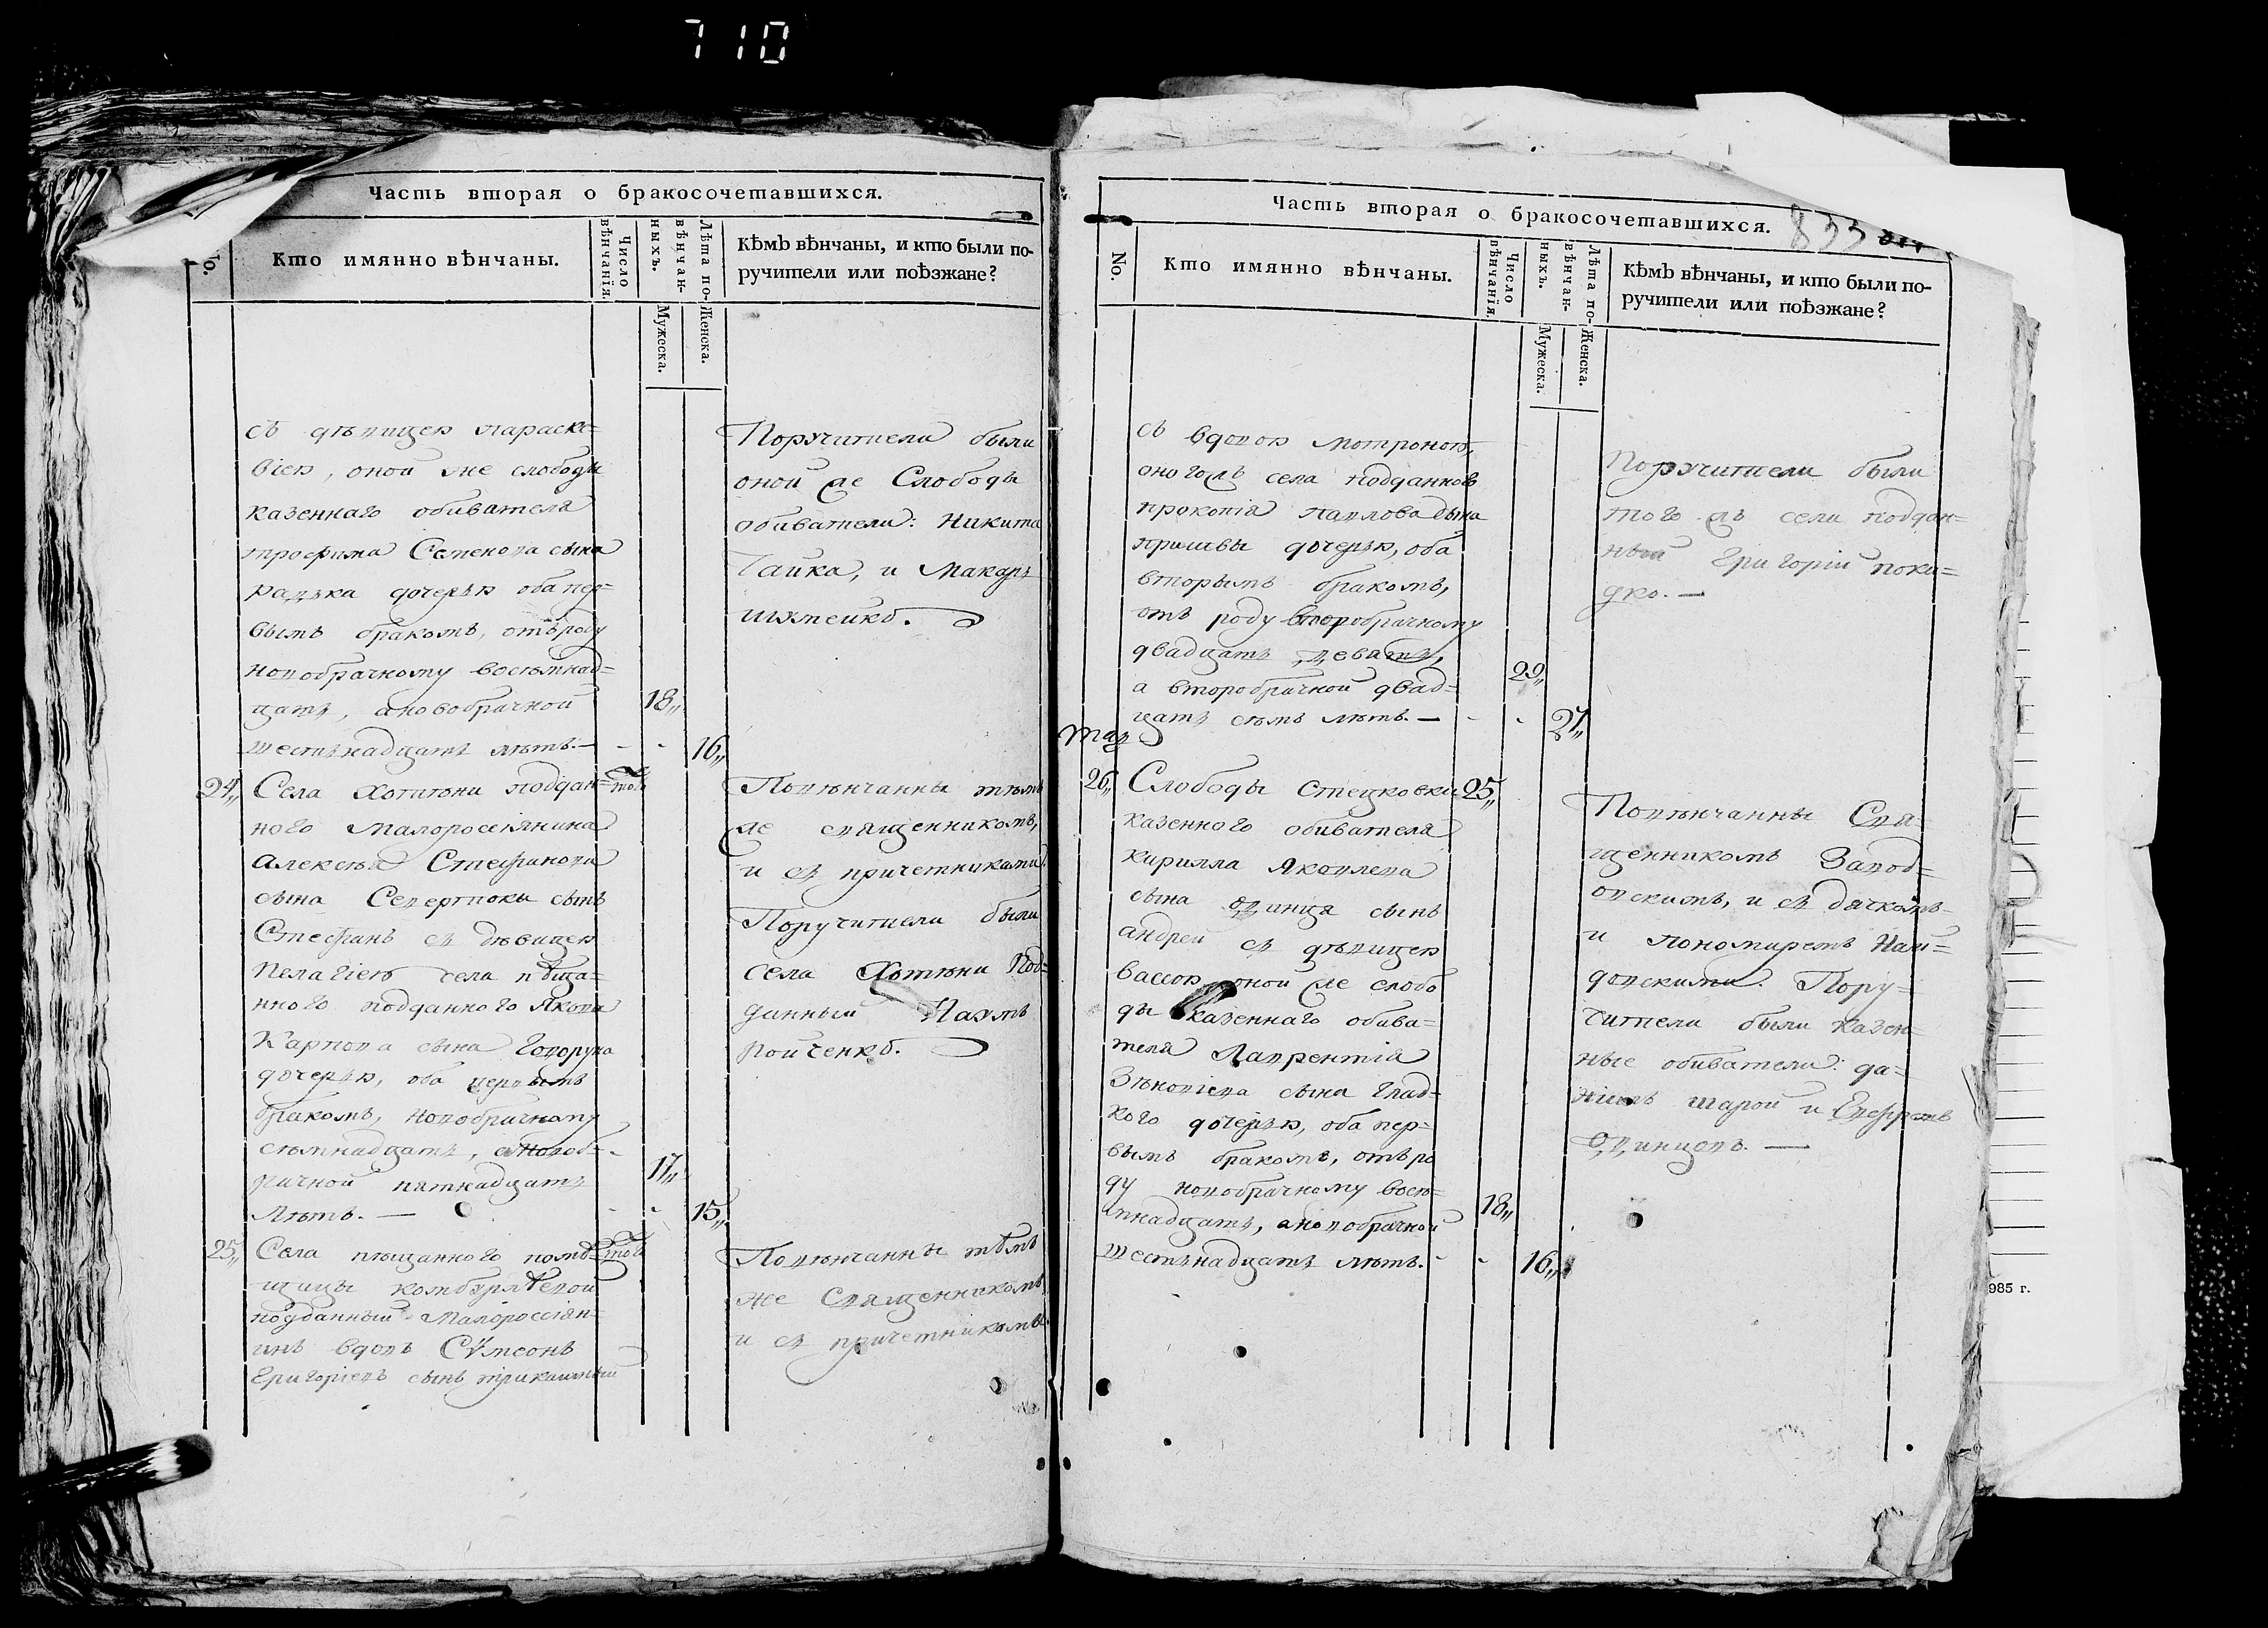 710
Часть вторая о бракосочетавшихся.
No.
Кто имянно вѣнчаны.
Число вѣнчанія.
Лѣта по-
вѣнчан-
ныхъ.
Мужеска.
Женска.
Кѣмъ вѣнчаны, и кто были по-
ручители или поѣзжане?
съ дѣвицею параске-
віею, оной же слободи
казеннаго обивателя
трофима Семенова сина
радька дочерью оба пер-
вымъ бракомъ, отъ роду
новобрачному восѣмнад-
цать, а новобрачной
шестьнадцать лѣтъ.—
18„
16„
Поручители были
оной же Слободы
обиватели: Никита
Гайка, и Макаръ
24„ Села Хотѣни поддан-
ного малоросіянина
алексѣя Стефанова
сына сынъ
Стефанъ съ дѣвицею
пелагіею села пѣща-
нного подданного Якова
Карпова сына Говоруна
дочерью, оба первымъ
бракомъ, новобрачному
сѣмнадцать, а новоб-
рачной пятнадцать
лѣтъ.—
17„
15„
Повѣнчанны тѣмъ
же священникомъ,
и съ причетниками.
Поручители были
села Хотѣни Под-
данный Наумъ
25„ Села пѣщанного помѣ-
щицы комбурлѣевой
подданный Малороссіян-
инъ вдовъ Сѵмеонъ
Григоріевъ сынъ
Повѣнчанны тѣмъ
же Священникомъ
и съ причетникомъ.
Часть вторая о бракосочетавшихся.
833
No.
Кто имянно вѣнчаны.
Число вѣнчанія.
Лѣта по-
вѣнчан-
ныхъ.
Мужеска.
Женска.
Кѣмъ вѣнчаны, и кто были по-
ручители или поѣзжане?
съ вдовою мотроною,
оногожъ села подданнов
прокопія павлова сына
дочерью, оба
вторымъ бракомъ,
отъ роду второбрачному
двадцать девять,
а второбрачной двад-
цать сѣмъ лѣтъ.—
29„
27„
Поручители были
того жъ села поддан-
ный Григорій поки-
дко.—
26„ Слободы Стецковки 25„
казенного обивателя
кирилла Яковлева
сына одинца сынъ
андрей съ дѣвицею
вассою оной же слобо
ды казеннаго обива-
теля Лаврентія
Зѣновіева сына Глад-
кого дочерью, оба пер-
вымъ бракомъ, отъ ро
ду новобрачному восѣ-
мнадцать, а новобрачной
шестьнадцать лѣтъ.
18„
16„
Повѣнчанны Свя-
щенникомъ Завод-
овскимъ, и съ дячкомъ
и пономаремъ Наи-
довскими. Пору-
чители были казен-
ные обиватели: да-
ніилъ шарой и Евфремъ
Одинцовъ.—
985 г.